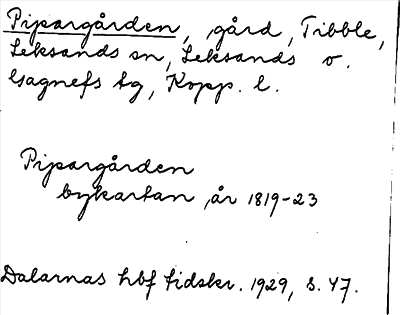 Pipargården, gård, Tibble,
Leksands sn, Leksands o.
Gagnefs tg, Kopp. l.
Pipargården
bykartan, år 1819-23
Dalarnas hbf tidskr. 1929, s. 47.